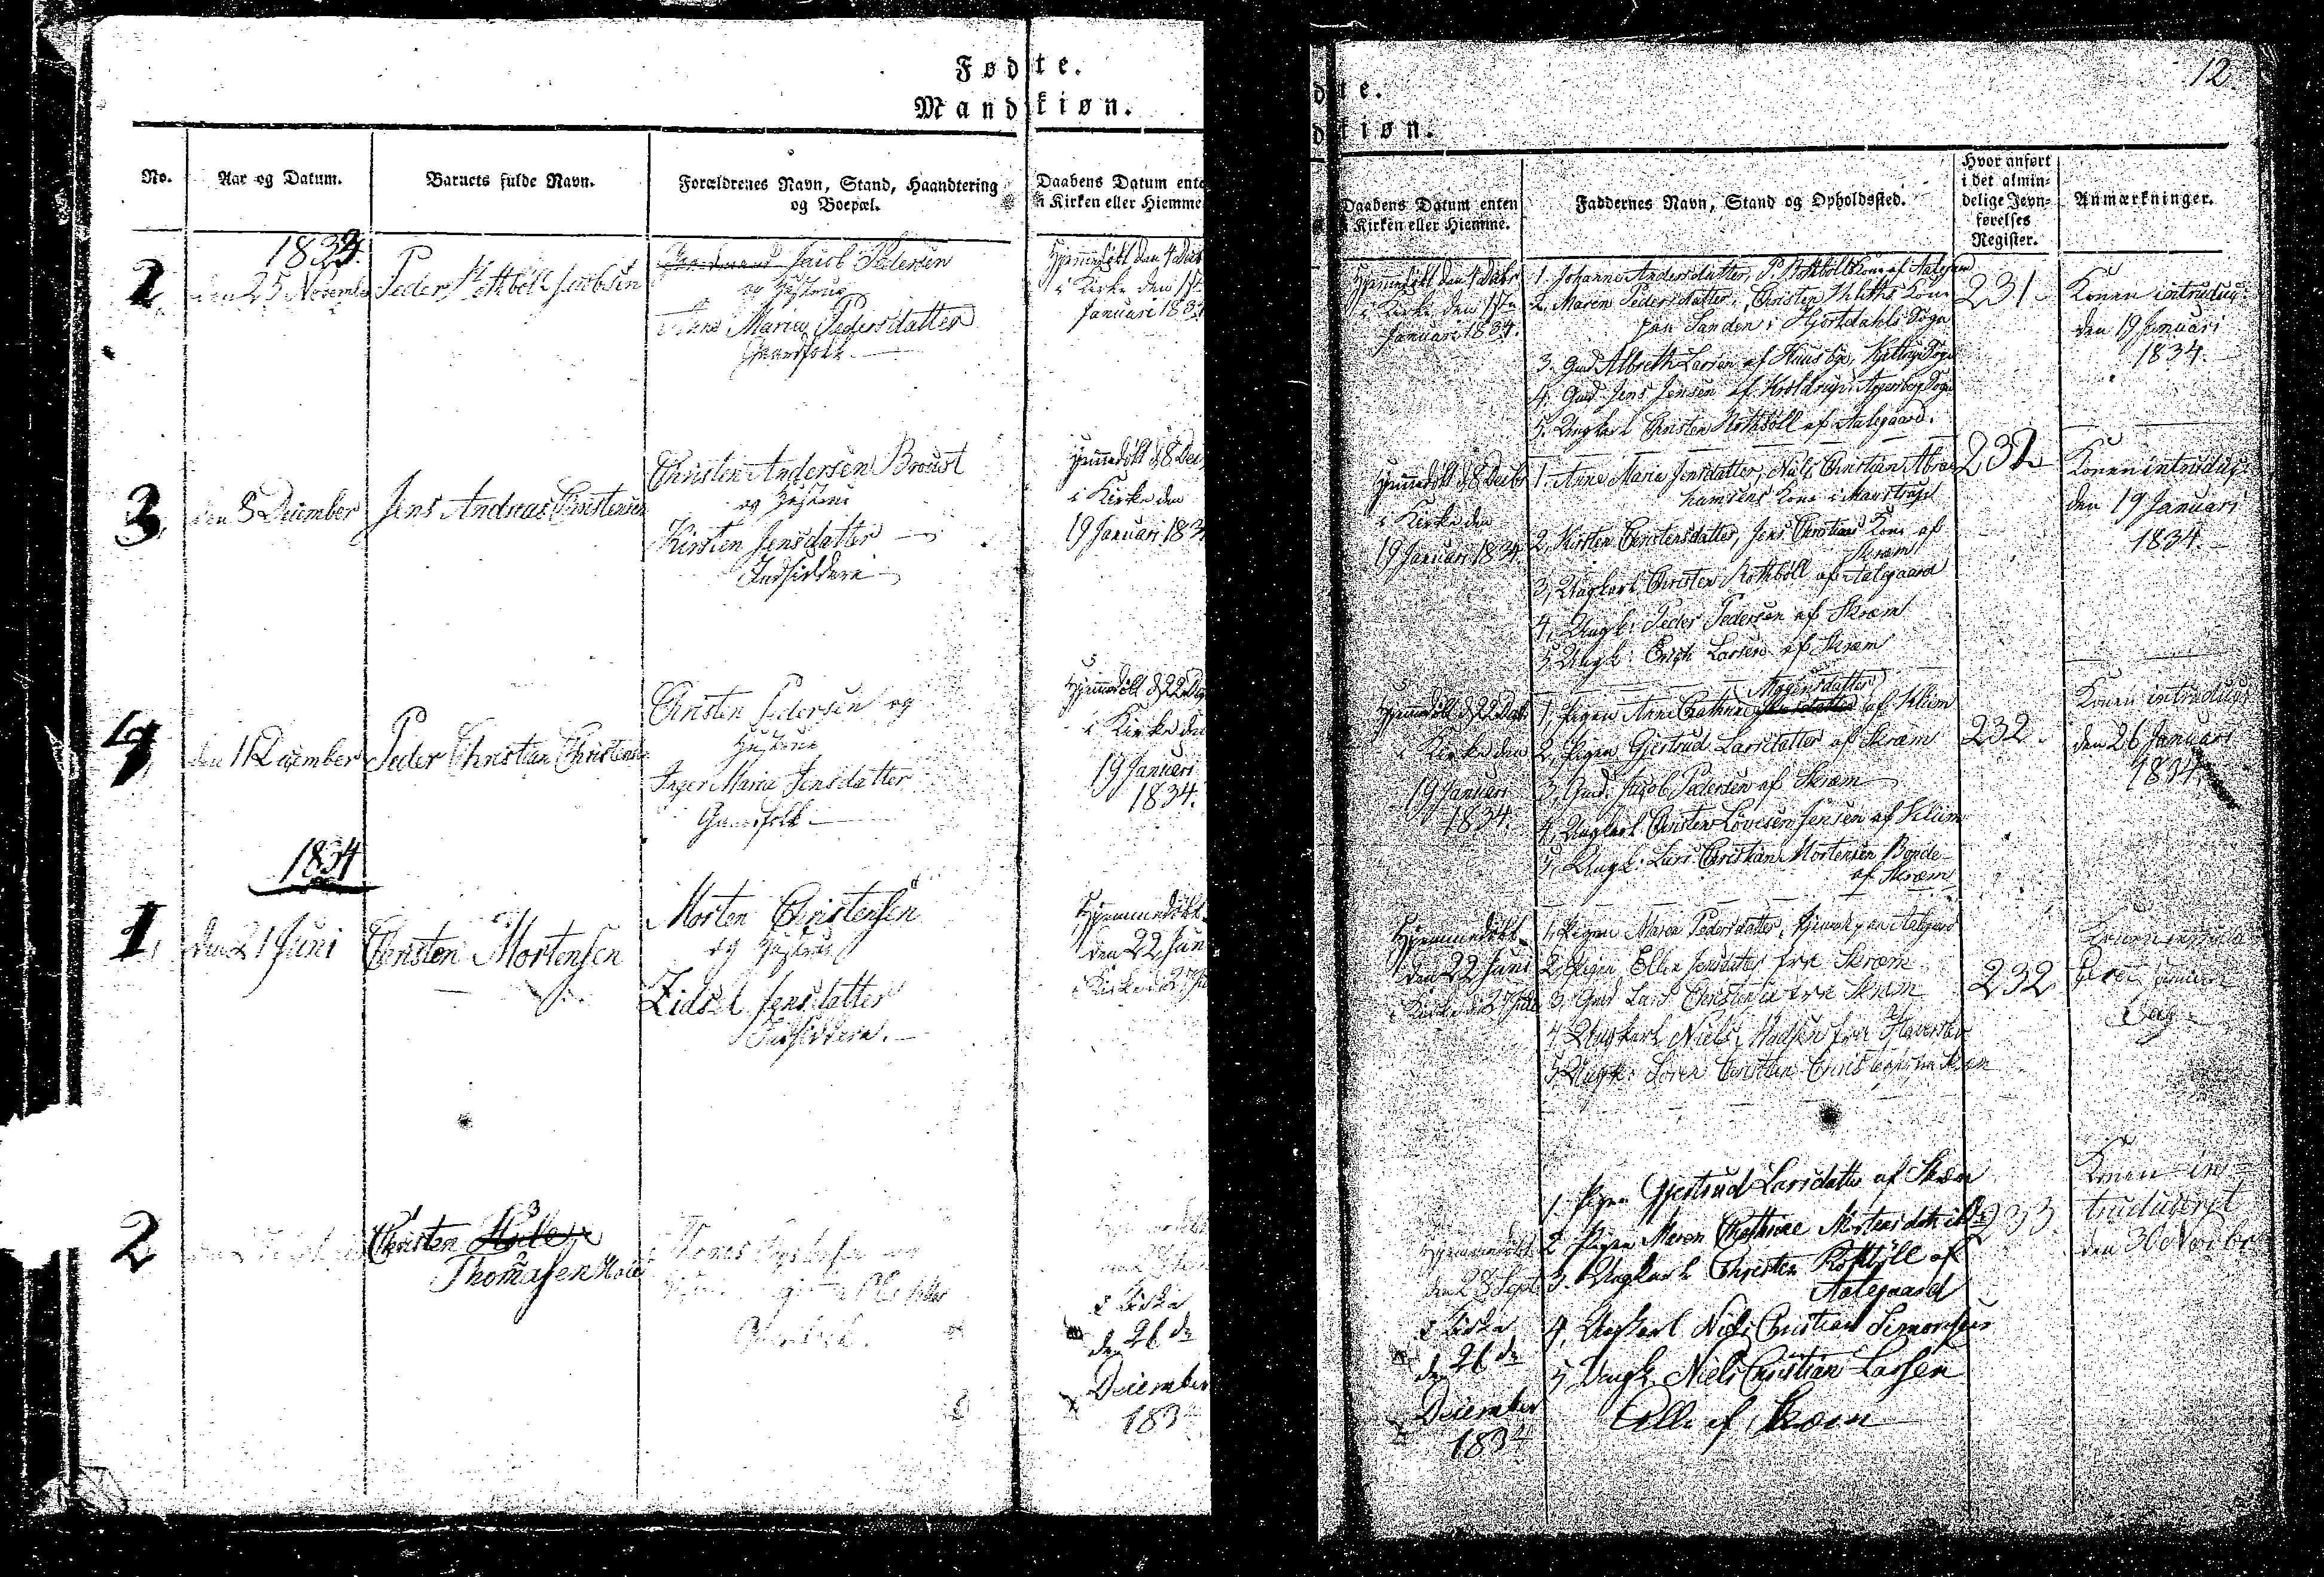 Fødte.
Mandkiøn.
No.
Aar og Datum.
Barnets fulde Navn.
Forældrenes Navn, Stand, Haandtering
og Boepæl.
Daabens Datum ente
i Kirken eller Hiemme
1833.
2,
den 25 November
Peder Kothböll Jacobsen
Jacob Pedersen
og Hustrue
Anne Maria Pedersdatter
Gaardfolk
Hjemmedöbt den 4 Decb
i Kirke den 1
Januari 183
3,
den 8 December
Jens Andreas Christensen
Christen Andersen Broust
og Hustrue
Kirsten Jensdatter
Indsiddere
Hjemmedöbt d 8 Dec
i Kirke den
19 Januari 183
4,
den 11 December
Peder Christian Christensen
Christen Pedersen og
Hustrue
Inger Maria Jensdatter
Gaardfolk
Hjemmedöbt d 22 De
i Kirke den
19 Januari
1834.
1834
1,
den 21 Juni
Christen Mortensen
Morten Christensen
og Hustrue
Zidsel Jensdatter
Indsiddere.
Hjemmedöbt
den 22 Jun
i Kirke d 27 Ju
2
Christen
Thomasen
i Kirke
den 26 de
December
183
12
te.
kiøn.
Daabens Datum enten
i Kirken eller Hiemme.
Faddernes Navn, Stand og Opholdssted.
Hvor anført
i det almin-
delige Jevn-
førelses
Register.
Anmærkninger.
Hjemmedöbt den 4 Decbr
i Kirke den
Januari 1834.
1. Johanne Andersdatter, P. Kothbölls Kone af Aalegaard
2. Maren Pedersdatter, Christen Kliths Kone
paa Sanden i Hjortdahls Sogn
3. Gmd Albreth Larsen af Huusbye, Kettrup Sogn
4. Gmd. Jens Jensen af Kroldrup,
5. Ungkarl Christen Kothböll af Aalegaard.
231.
Konen introduc:
den 19 Januari
1834.
Hjemmedöbt d 8 Decbr
i Kirke den
19 Januari 1834.
1. Anne Maria Jensdatter, Niels Christian Abra-
hamsens Kone i Maustrup
2, Kirsten Christensdatter, Jens Christians Kone af
Skræm
3, Ungkarl Christen Kothböll af Aalegaard
4, Ungk: Peder Pedersen af Skræm
5, Ungk: Larsen af Skræm
232
Konen introduc:
den 19 Januari
1834.
Hjemmedöbt d 22 Decb:
i Kirke den
19 Januari
1834.
1, Pigen Anne Cathrine af Klim
2, Pigen Gjertrud Larsdatter af Skræm
3, Gmd. Jacob Pedersen af Skræm
4, Ungkarl Christen Lövesen Jensen af Klim
5, Ungk: Lars Christian Mortensen Bonde
af Skræm
232.
Konen introduc:
den 26 Januari
1834
Hjemmedöbt
den 22 Juni
i Kirke d 27 Juli
1, Pigen Maria Pedersdatter,
2, Pigen Ellen Jensdatter fra Skræm
3, Gmd Lars Christensen fra Skræm
4 Ungkarl Niels Madsen fra
5 Ungk: Sören Christian
232
Konen
Dag
Hjemmedöbt
den 28 Sept
i Kirke
den 26 de
December
1834
1. Pigen Gjertrud Larsdatter af Skræm
2, Pigen Maren Cathrine
3. Ungkarl Christen Kothböll af
Aalegaard
4, Ungkarl Niels Christian Simonsen
5, Ungk. Niels Christian Larsen
Alle af Skræm
233
Konen in-
troduceret
den 30 Novbr